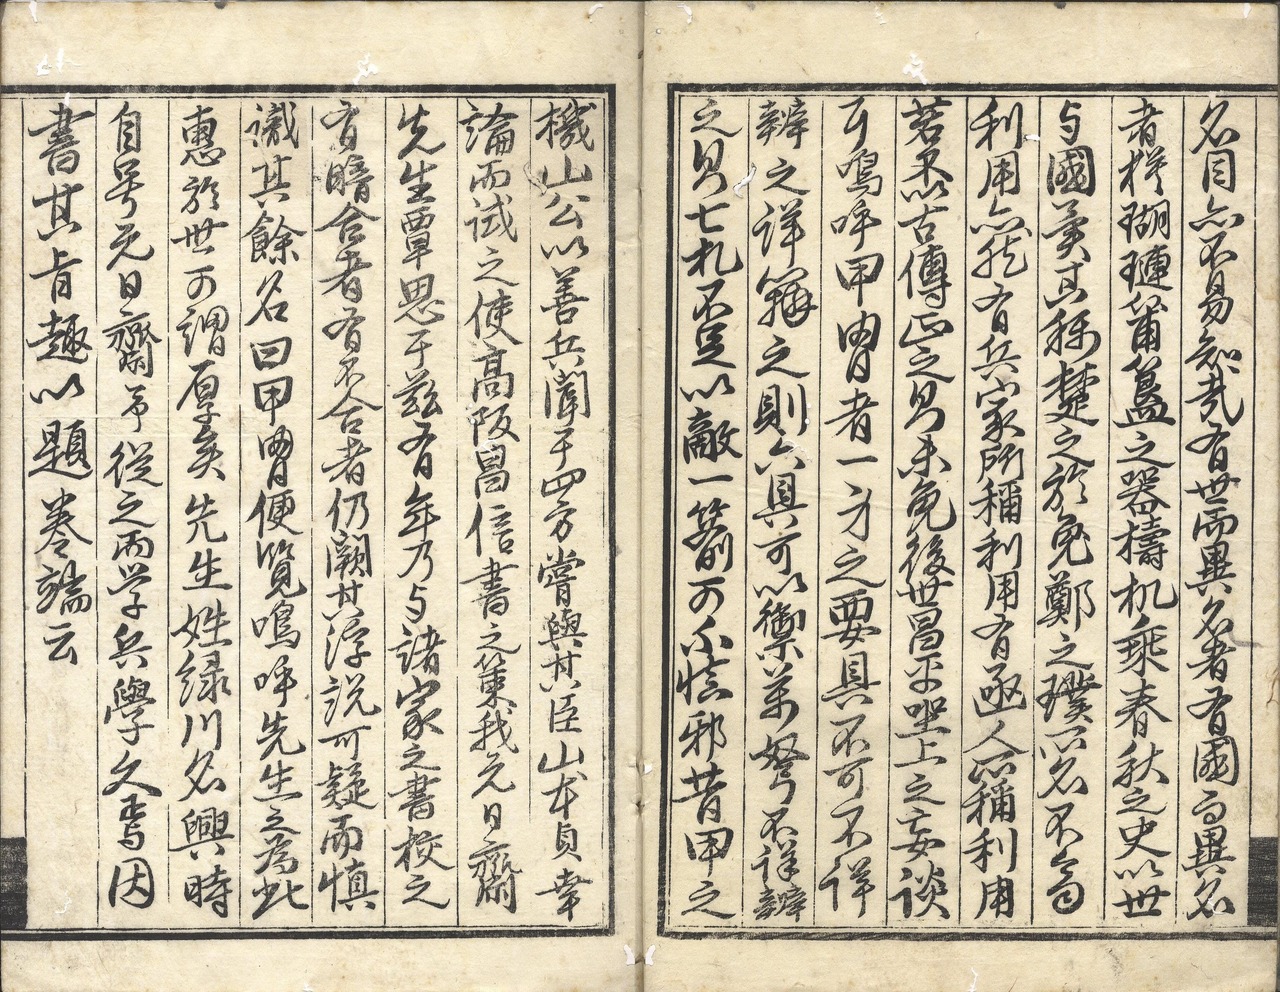 名目亦不易知哉有世而異名者有國而異名
者樣瑚璉簠簋之器檮杌乘春秋之史以世
与國異其称楚之於兔鄭之璞以名不
利用亦然有兵家所稱利用有函人所稱利用
若不以古傳正之則未免後世昌平坐上之妄談
可嗚呼甲冑者一身之要具不可不詳
辨之詳辨之則六具可以禦萬弩不詳辨
之則七札不足以敵一箭可不慎邪昔甲之
機山公以善兵聞于四方嘗與其臣山本貞幸
論而試之使高阪昌信書之策我元日齋
先生覃思于茲有年乃与諸家之書校之
有暗合者有不合者仍闕其浮説可疑而慎
識其餘名曰甲冑便覧嗚呼先生之為此
惠於世可謂厚矣先生姓緑川名興時
自号元日齋予從之而学兵學久焉因
書其旨趣以題巻端云